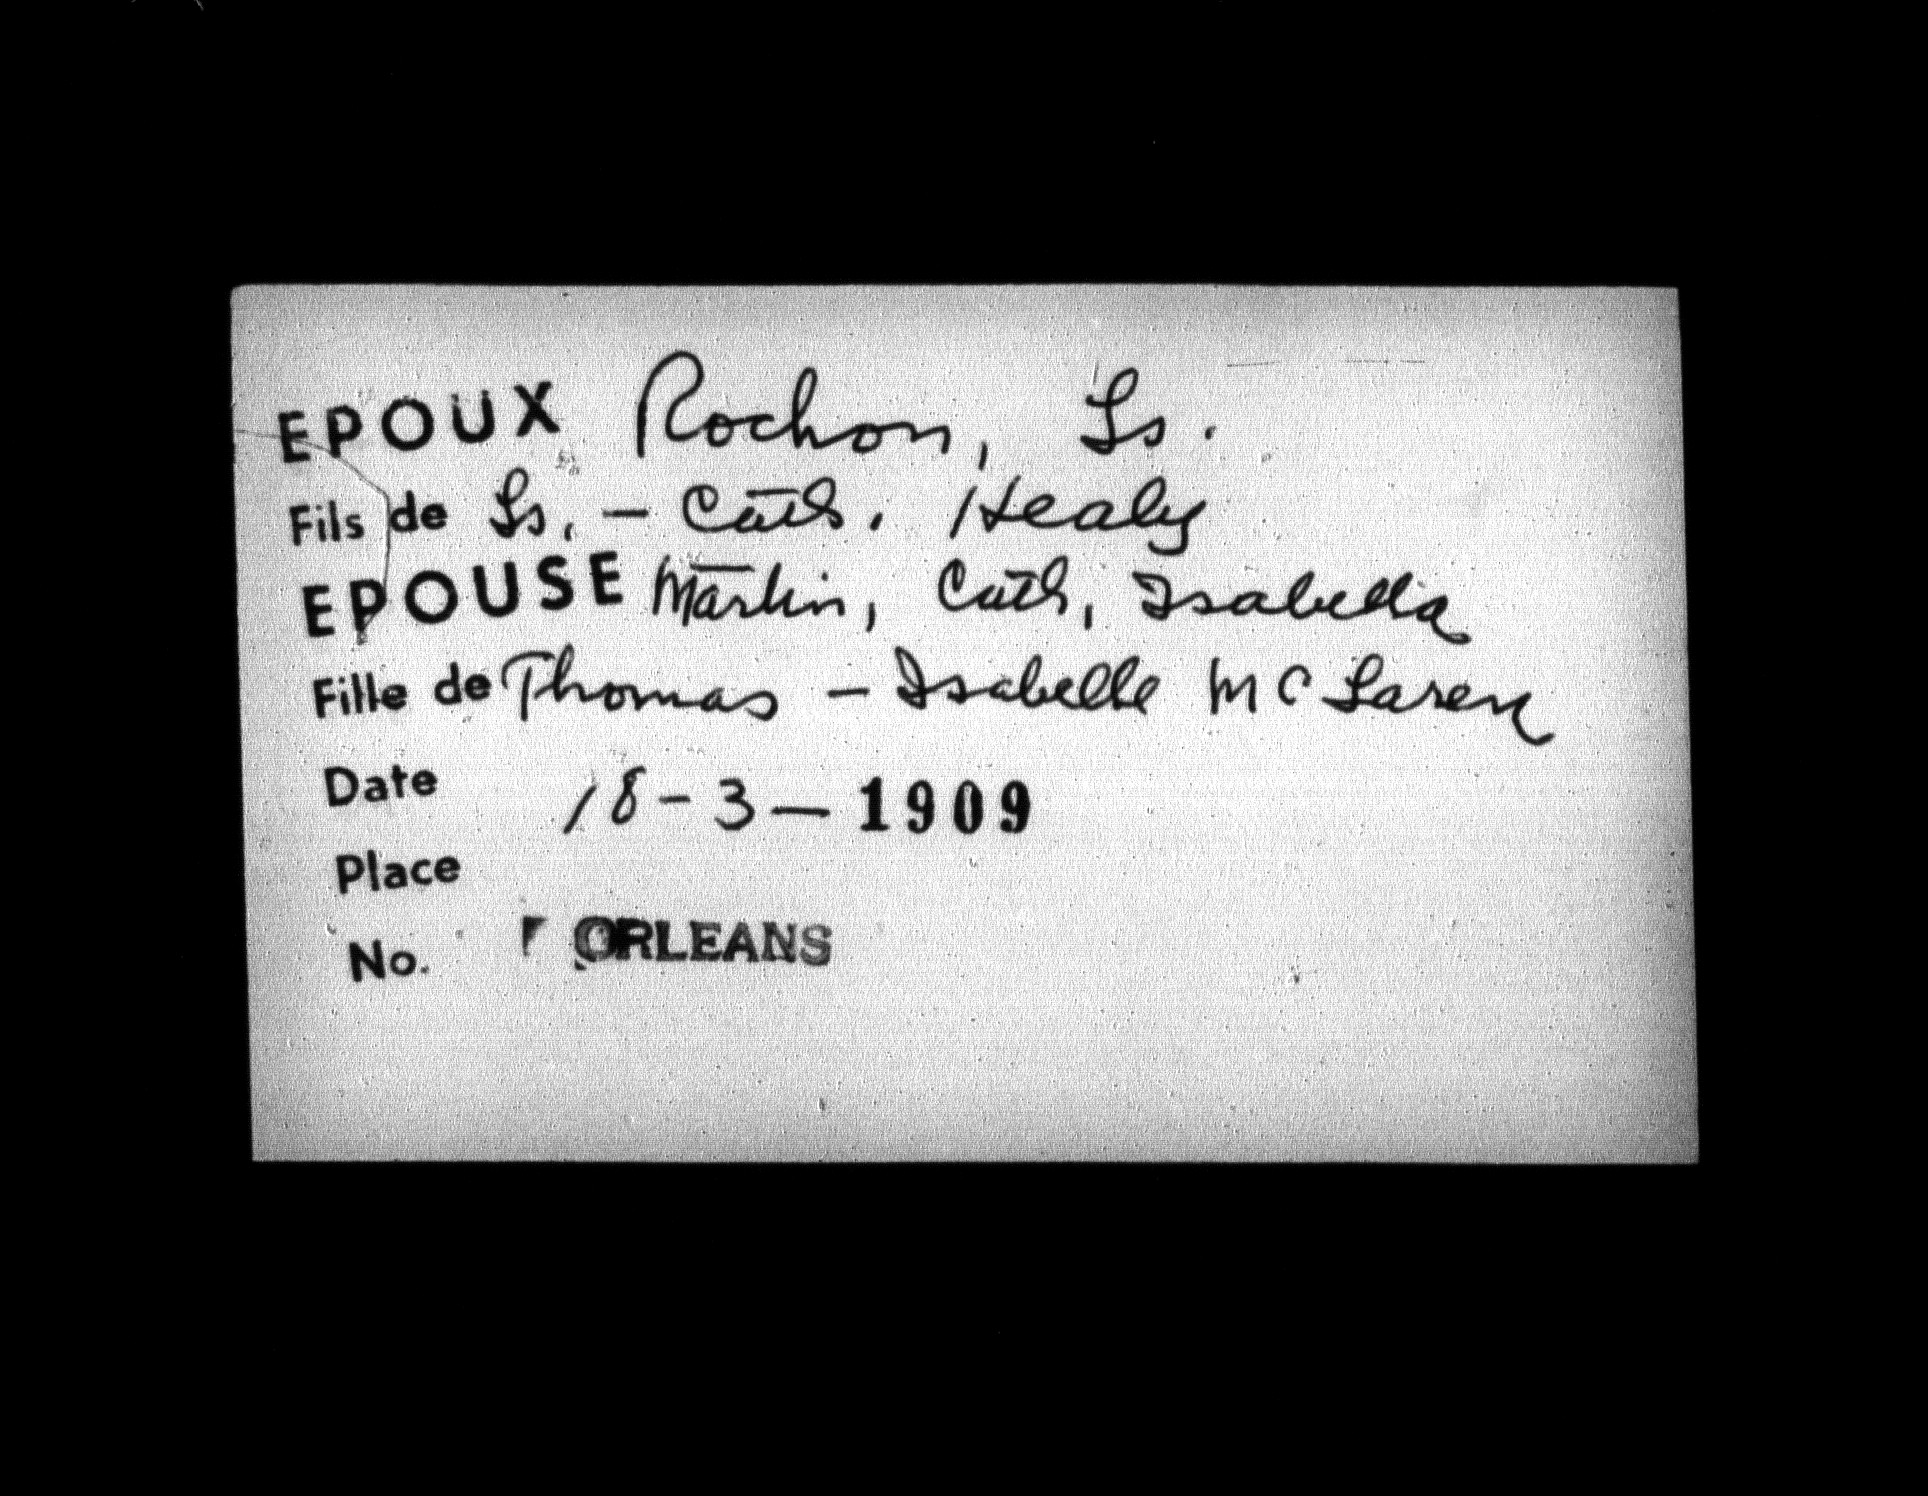 EPOUX Rochon, Ls.
Fils de Ls. - Cath. Healy
EPOUSE Martin, Cath, Isabella
Fille de Thomas - Isabelle McLaren
Date 18-3-1909
Place
No. ORLEANS